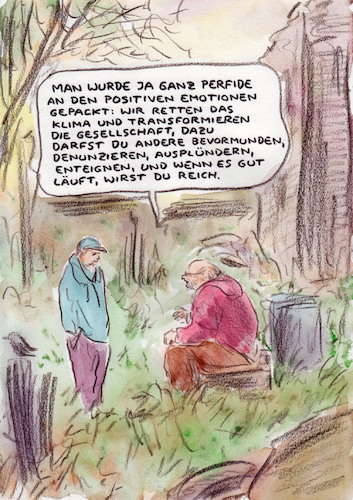 MAN WURDE JA GANZ PERFIDE
AN DEN POSITIVEN EMOTIONEN
GEPACKT: WIR RETTEN DAS
KLIMA UND TRANSFORMIEREN
DIE GESELLSCHAFT, DAZU
DARFST DU ANDERE BEVORMUNDEN,
DENUNZIEREN, AUSPLÜNDERN,
ENTEIGNEN, UND WENN ES GUT
LÄUFT, WIRST DU REICH.